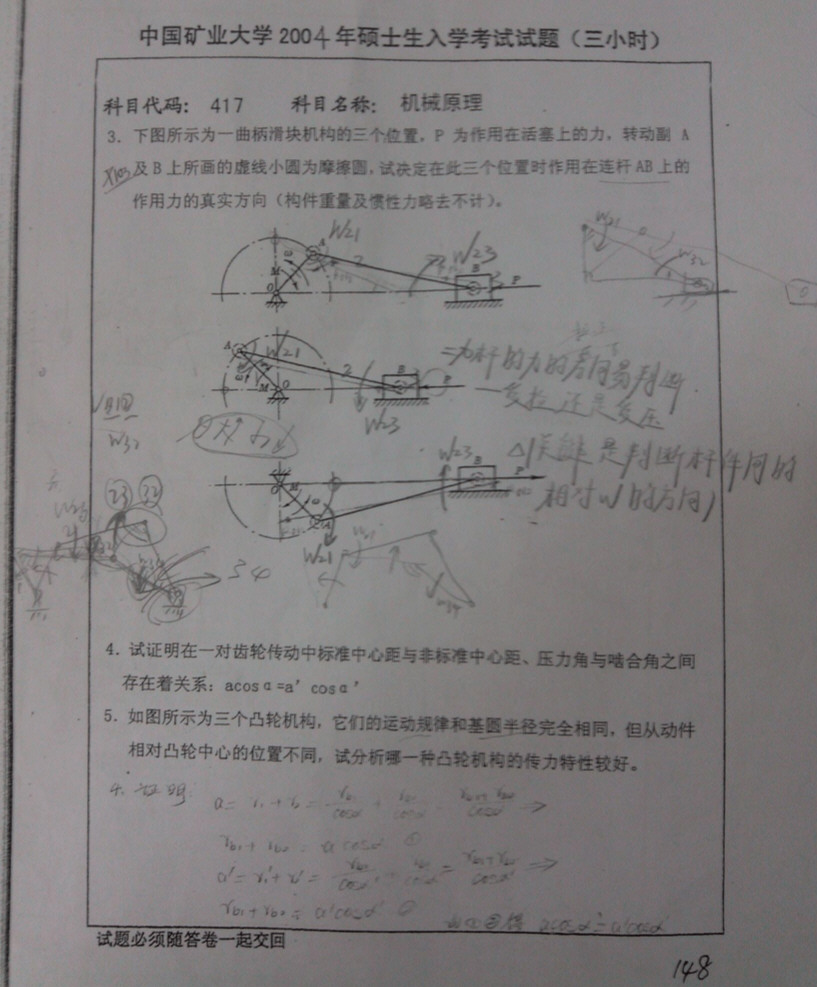 中国矿业大学2004年硕士生入学考试试题（三小时）
科目代码： 417 科目名称： 机械原理
3．下图所示为一曲柄滑块机构的三个位置，P 为作用在活塞上的力，转动副 A
及 B 上所画的虚线小圆为摩擦圆，试决定在此三个位置时作用在连杆 AB 上的
P103
作用力的真实方向（构件重量及惯性力略去不计）。
W21
A
W23
2
B
P
M
ω
O
W21
W32
A
W21
2
B
P
ω
M
O
W23
二力杆的力的方向易判断
受拉还是受压
W32
W23
B
P
△(关键是判断杆件间的
相对W的方向)
O
M
ω
A
W21
23 32
34
4．试证明在一对齿轮传动中标准中心距与非标准中心距、压力角与啮合角之间
存在着关系：acosα=a′cosα′
5．如图所示为三个凸轮机构，它们的运动规律和基圆半径完全相同，但从动件
相对凸轮中心的位置不同，试分析哪一种凸轮机构的传力特性较好。
4. 证明:
a = r1 + r2 = rb1/cosα + rb2/cosα = rb1+rb2/cosα ⇒
rb1 + rb2 = a cosα ①
a′ = r1′ + r2′ = rb1/cosα′ + rb2/cosα′ = rb1+rb2/cosα′ ⇒
rb1 + rb2 = a′cosα′ ②
由①②得 acosα = a′cosα′
试题必须随答卷一起交回
148